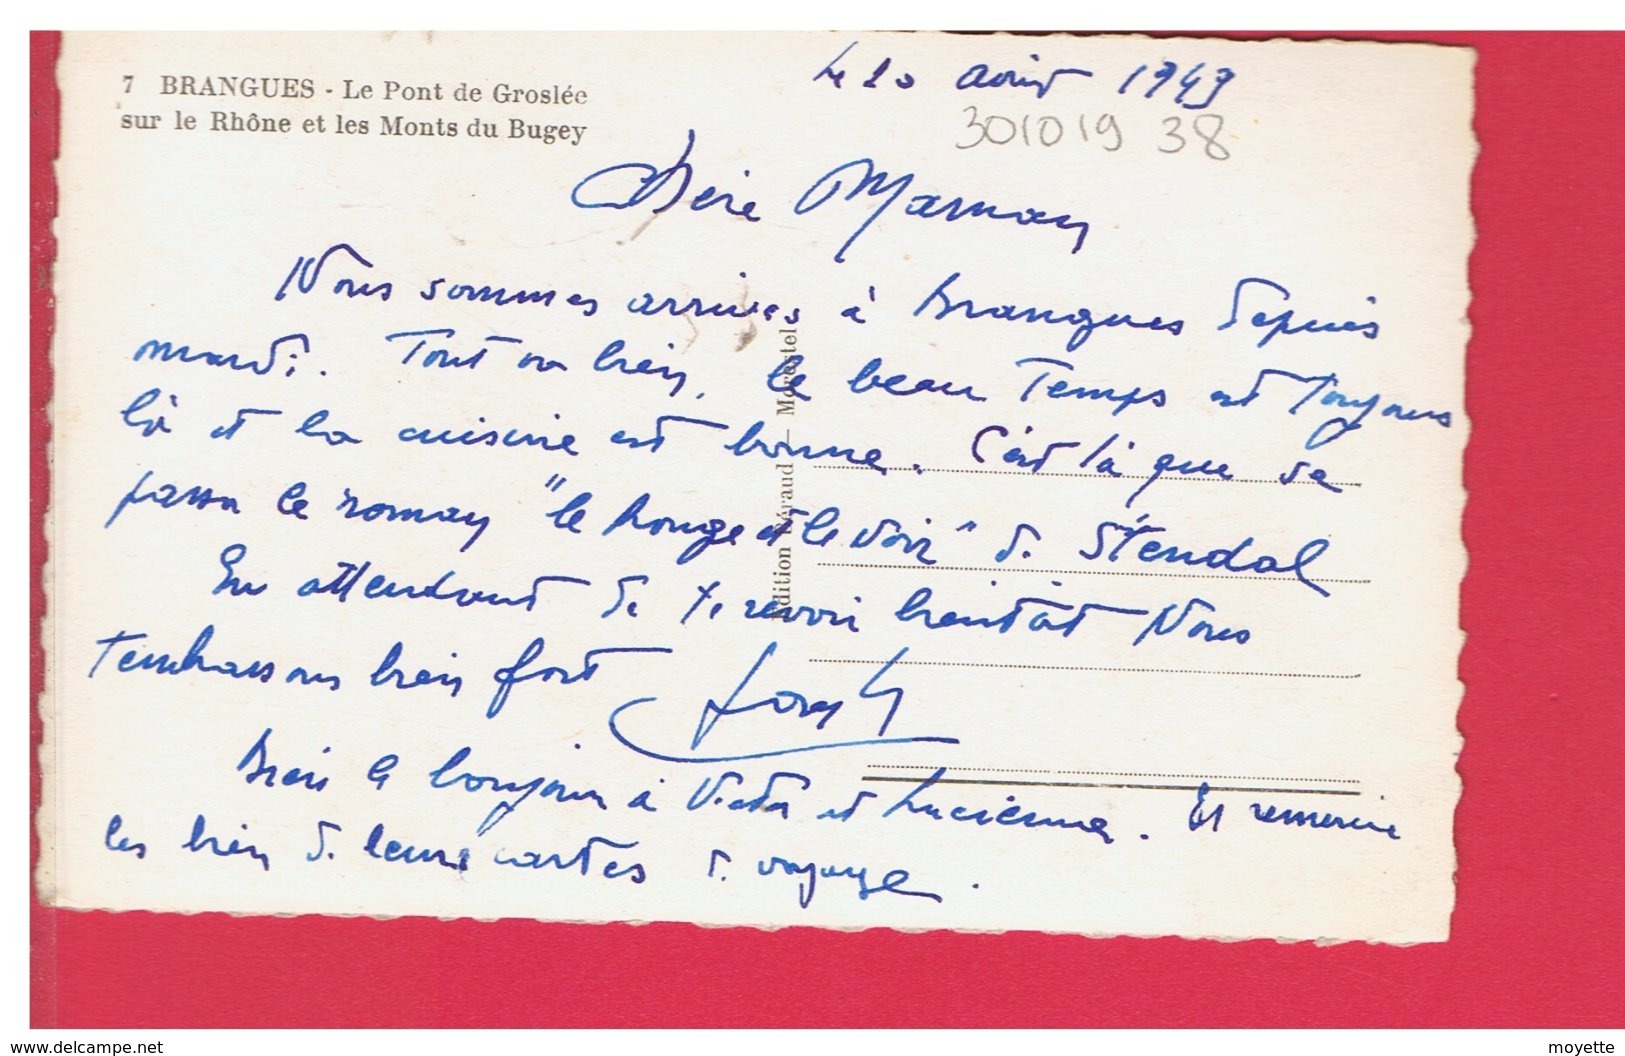 7 BRANGUES - Le Pont de Groslée
sur le Rhône et les Monts du Bugey
Le 20 août 1949
301019 38
Chère Maman
Nous sommes arrivés à Brangues depuis
mardi. Tout va bien, le beau temps est toujours
là et la cuisine est bonne. C'est là que se
passa le roman "le Rouge et le Noir" de Stendal
En attendant de te revoir bientôt Nous
t'embrassons bien fort
Bien le bonjour à et Lucienne. Et remercie
les bien de leurs cartes de voyage.
Edition Béraud — Morestel
www.delcampe.net
moyette